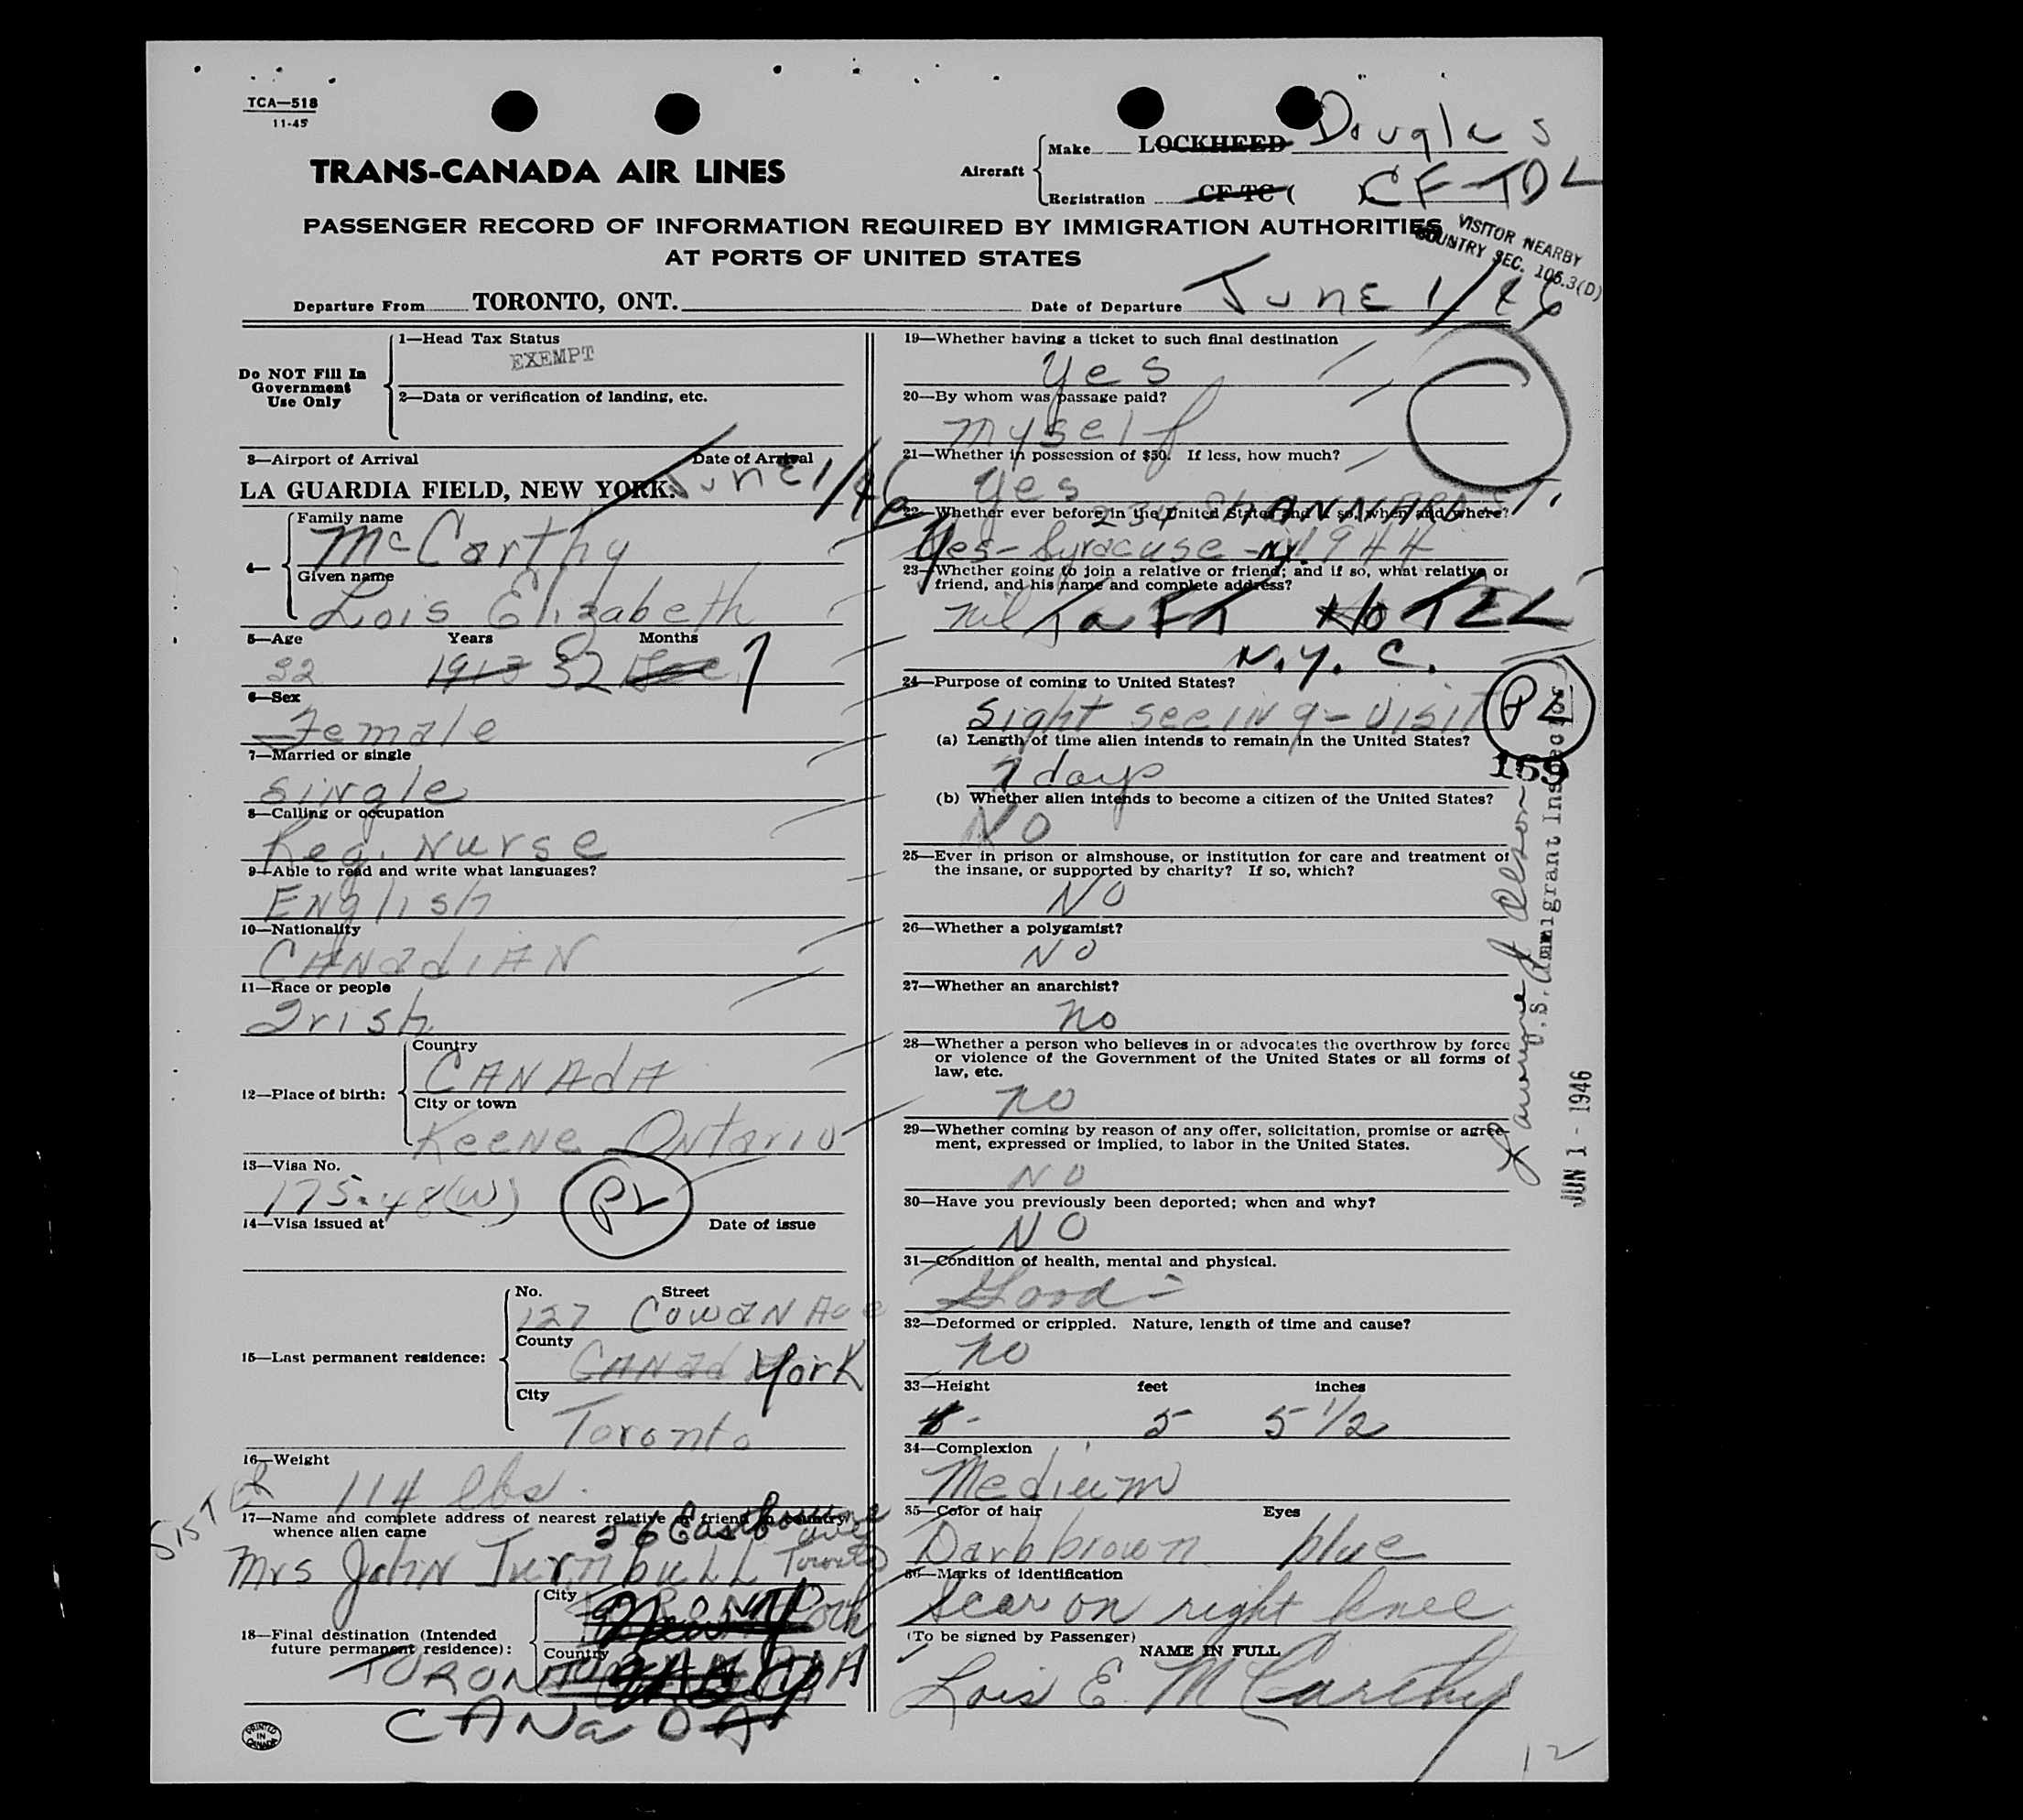 TCA—518
11-45
TRANS-CANADA AIR LINES
Aircraft
Make LOCKHEED Douglas
Registration CF-TC ( ) CF-TDL
PASSENGER RECORD OF INFORMATION REQUIRED BY IMMIGRATION AUTHORITIES
AT PORTS OF UNITED STATES
VISITOR NEARBY
COUNTRY SEC. 105.3(D)
Departure From TORONTO, ONT. Date of Departure June 1/46
Do NOT Fill In
Government
Use Only
1—Head Tax Status
EXEMPT
2—Data or verification of landing, etc.
3—Airport of Arrival Date of Arrival
LA GUARDIA FIELD, NEW YORK. June 1/46
4—
Family name
McCarthy
Given name
Lois Elizabeth
5—Age Years Months
32 1913 32 Dec 7
6—Sex
Female
7—Married or single
single
8—Calling or occupation
Reg. Nurse
9—Able to read and write what languages?
English
10—Nationality
CANadiAN
11—Race or people
Irish
12—Place of birth:
Country
CANAdA
City or town
Keene Ontario
13—Visa No.
175.48(W) PL
14—Visa issued at Date of issue
15—Last permanent residence:
No. Street
127 Cowan Ave
County
Canada York
City
Toronto
16—Weight
114 lbs.
SISTER
17—Name and complete address of nearest relative or friend in country
whence alien came
56 Eastbourne
Ave
Mrs John Turnbull Toronto
18—Final destination (Intended
future permanent residence):
City
Country
TORONTO
CANaDA
PRINTED
IN
CANADA
19—Whether having a ticket to such final destination
Yes
20—By whom was passage paid?
myself
21—Whether in possession of $50. If less, how much?
Yes
22—Whether ever before in the United States and if so, when and where?
Yes - Syracuse - N.Y. 1944
23—Whether going to join a relative or friend; and if so, what relative or
friend, and his name and complete address?
nil TaFT HOTEL
N.Y.C.
24—Purpose of coming to United States?
Sight seeing - visit PL
(a) Length of time alien intends to remain in the United States?
7 days
159
(b) Whether alien intends to become a citizen of the United States?
NO
25—Ever in prison or almshouse, or institution for care and treatment of
the insane, or supported by charity? If so, which?
NO
26—Whether a polygamist?
NO
27—Whether an anarchist?
no
28—Whether a person who believes in or advocates the overthrow by force
or violence of the Government of the United States or all forms of
law, etc.
no
29—Whether coming by reason of any offer, solicitation, promise or agree-
ment, expressed or implied, to labor in the United States.
NO
30—Have you previously been deported; when and why?
NO
31—Condition of health, mental and physical.
Good -
32—Deformed or crippled. Nature, length of time and cause?
no
33—Height feet inches
5 5 1/2
34—Complexion
Medium
35—Color of hair Eyes
Dark brown blue
36—Marks of identification
Scar on right knee
(To be signed by Passenger)
NAME IN FULL
Lois E. McCarthy
U.S. Immigrant Inspector
JUN 1 - 1946
12